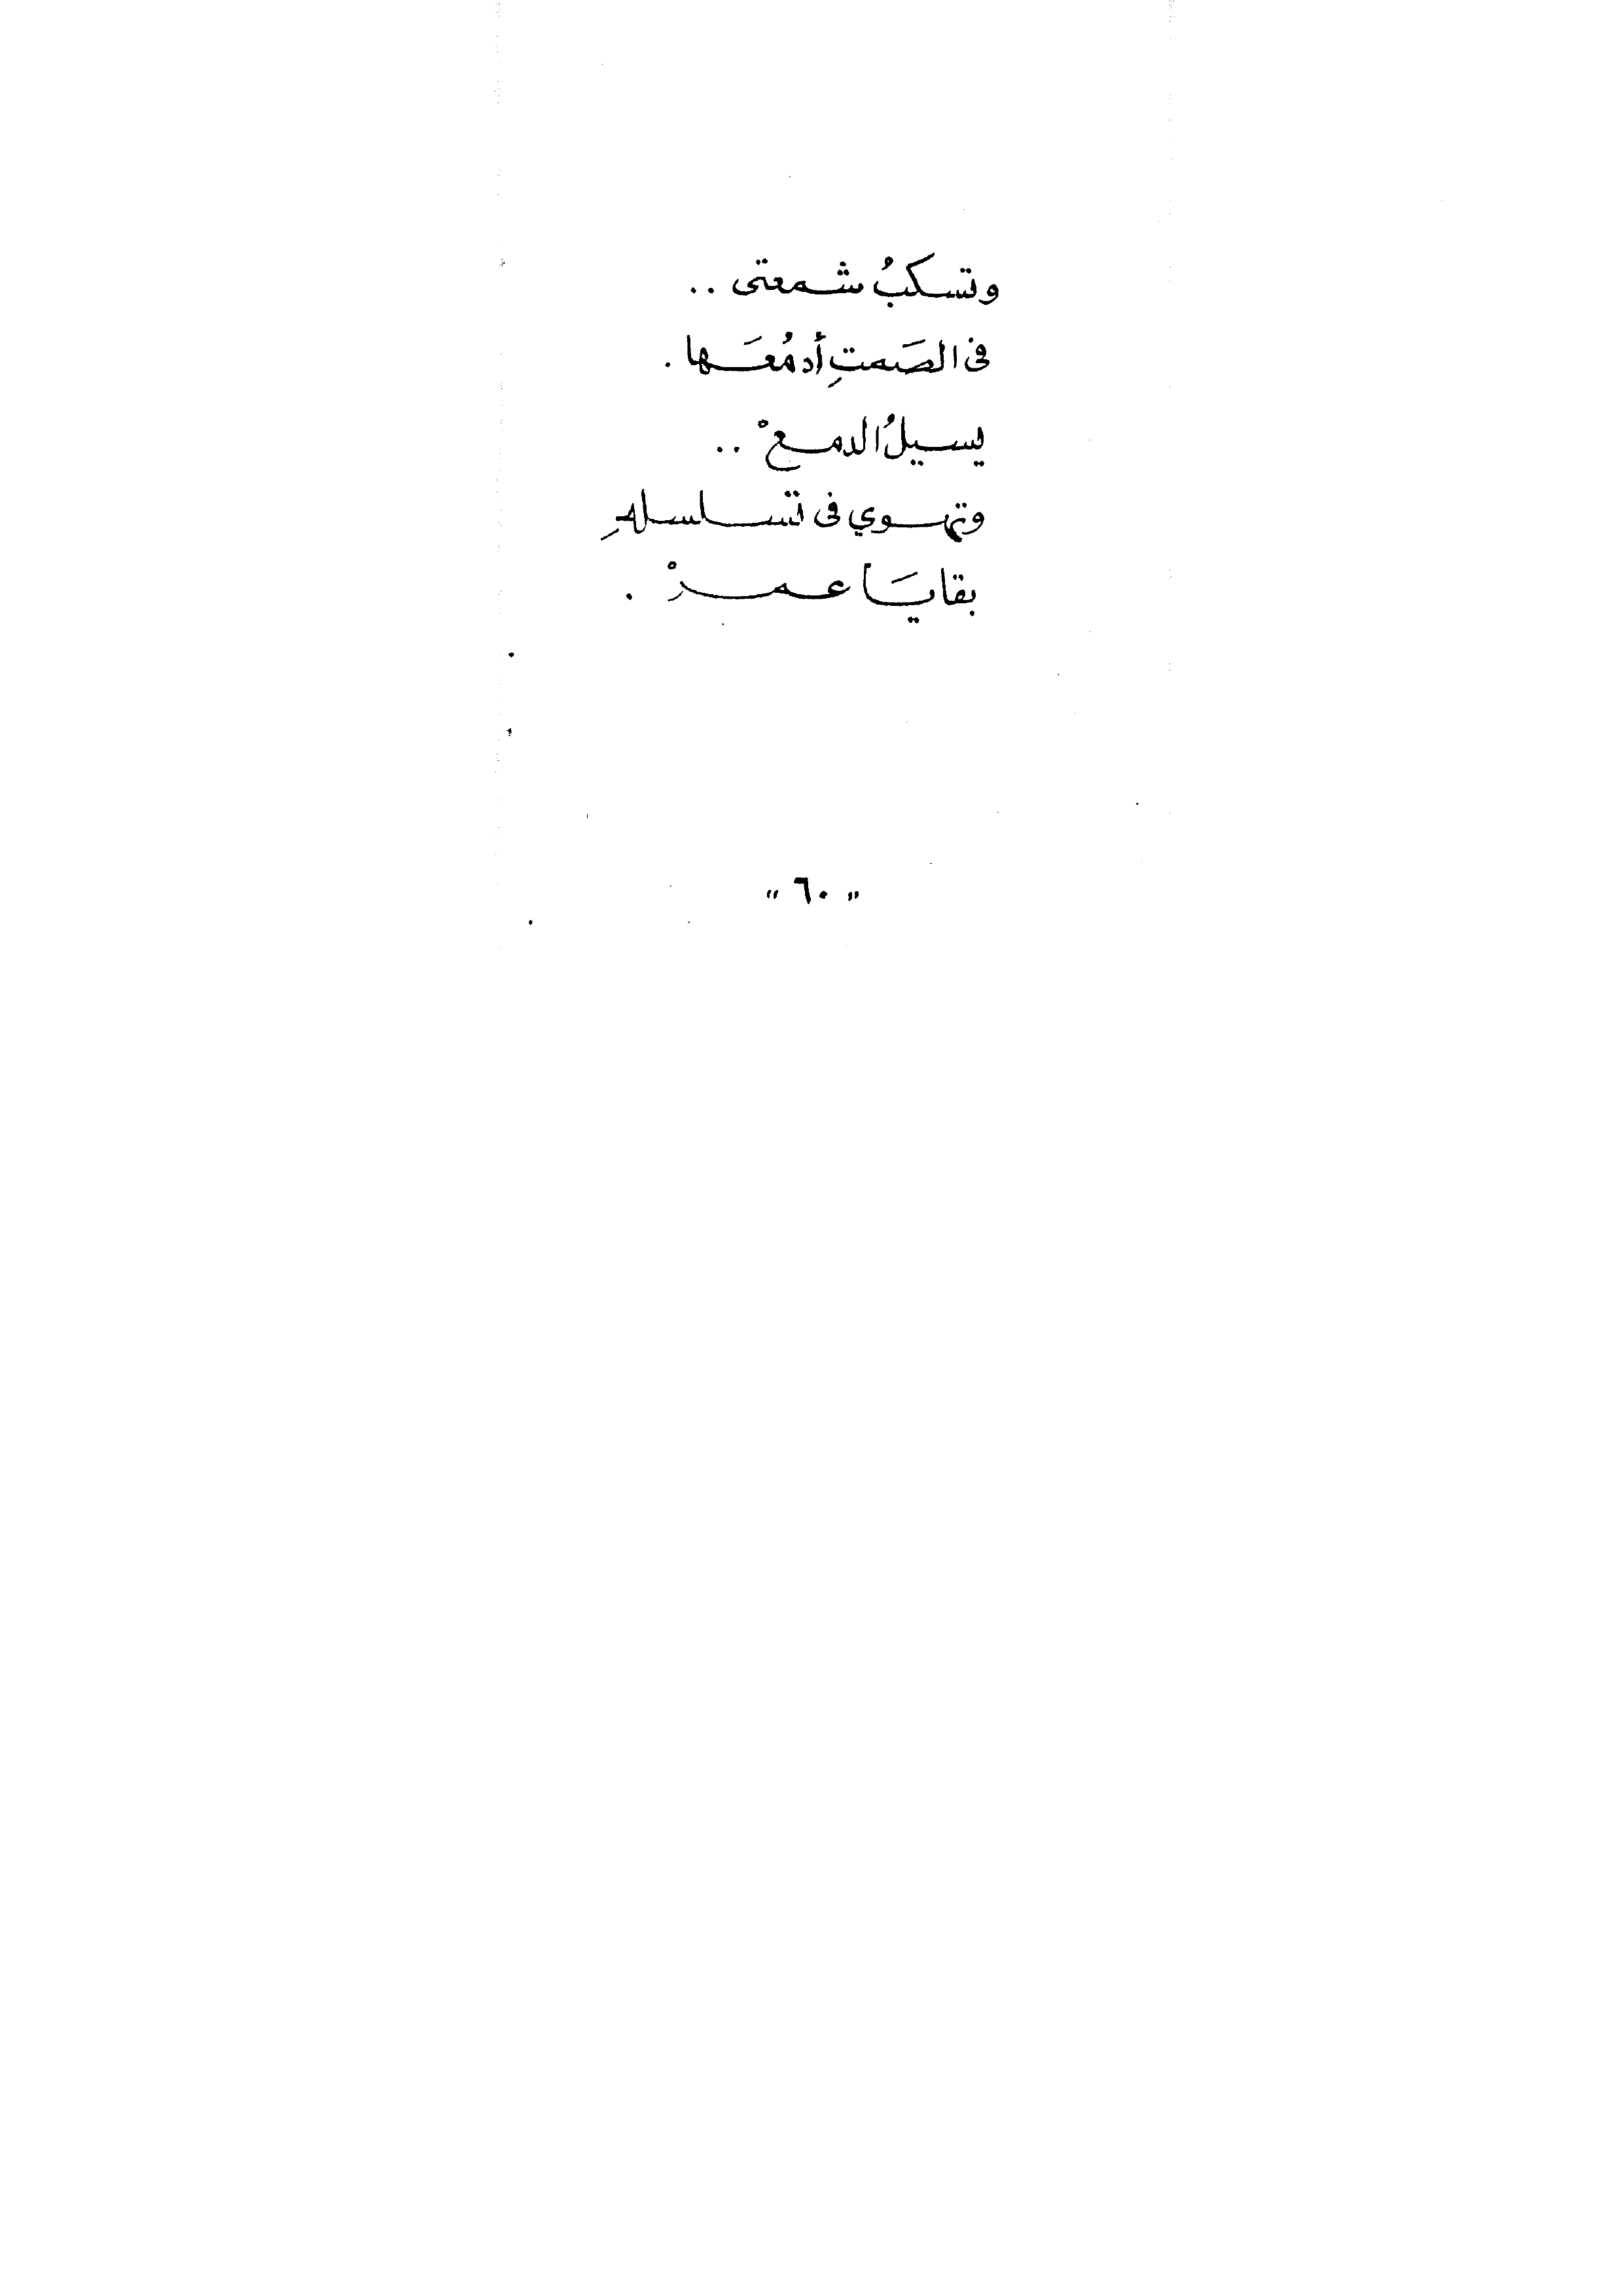 وتسكبُ شمعتى ..
فى الصَمتِ أدمُعَها .
يسيلُ الدمعْ ..
وتهوي فى تسلسلهِ
بقايَا عمرْ .
" ٦٠ "